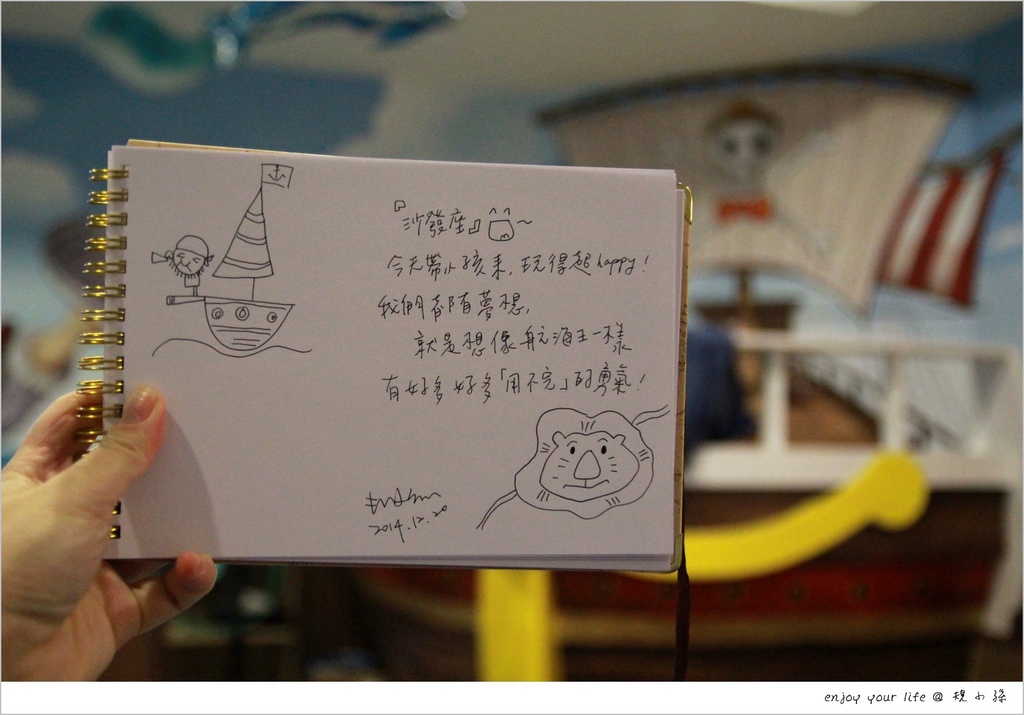 『沙發座』~
今天帶小孩來,玩得超happy!
我們都有夢想,
就是想像航海王一樣
有好多好多「用不完」的勇氣!
2014.12.20
enjoy your life @ 規小孫